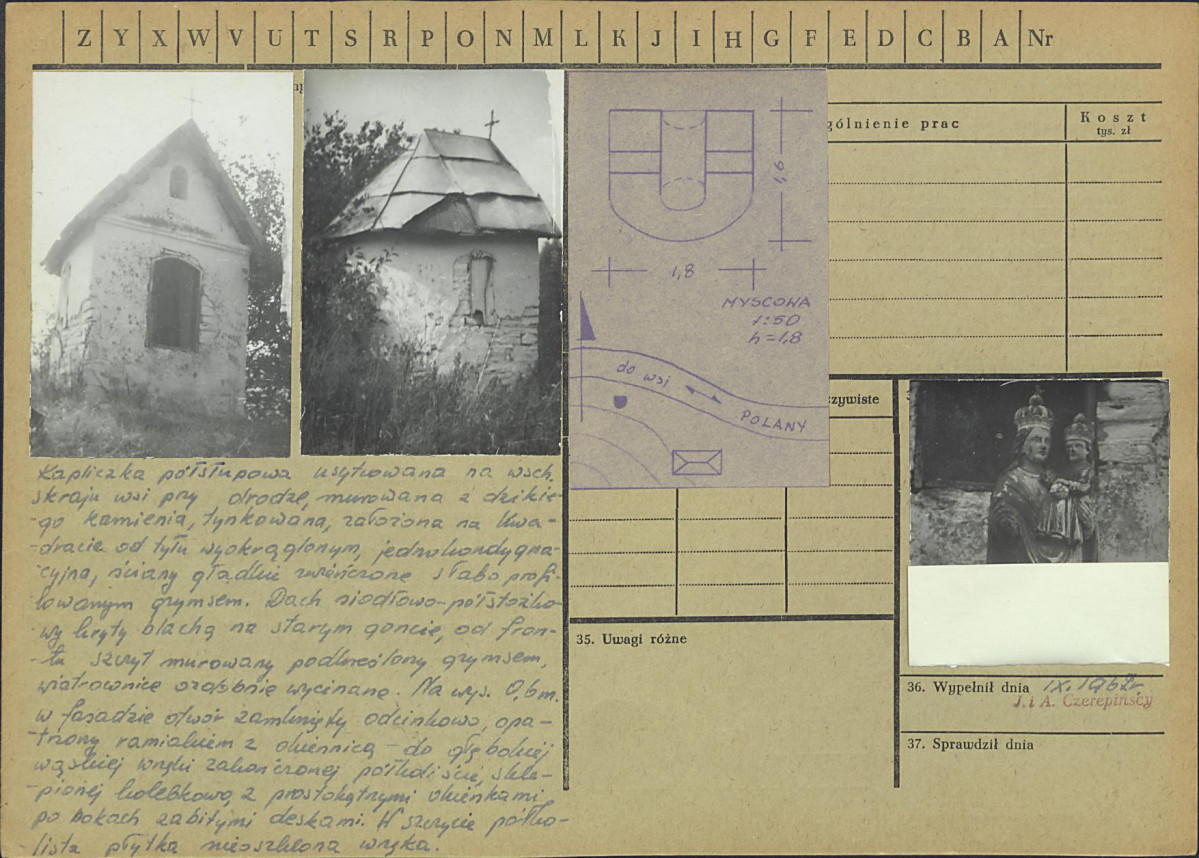 Z Y X W V U T S R P O N M L K J I H G F E D C B A Nr
gólnienie prac
Koszt
tys. zł
1,6
1,8
MYSCOWA
1:50
h=1,8
do wsi
POLANY
zywiste
Kapliczka półsłupowa usytuowana na wsch.
skraju wsi przy drodze, murowana z dzikie-
-go kamienia, tynkowana, założona na kwa-
-dracie od tyłu wyokrąglonym, jednokondygna-
-cyjna, ściany gładkie zwieńczone słabo profi-
lowanym gzymsem. Dach siodłowo-półstożko-
-wy kryty blachą na starym goncie, od fron-
-tu szczyt murowany podkreślony gzymsem,
wiatrownice ozdobnie wycinane. Na wys. 0,6 m.
w fasadzie otwór zamknięty odcinkowo, opa-
-trzony ramiakiem z okiennicą - do głębokiej
wąskiej wnęki zakończonej półkoliście, skle-
-pionej kolebkowo, z prostokątnymi okienkami
po bokach zabitymi deskami. W szczycie półko-
lista płytka nieoszklona wnęka.
35. Uwagi różne
36. Wypełnił dnia IX.1967r.
J. i A. Czerepińscy
37. Sprawdził dnia